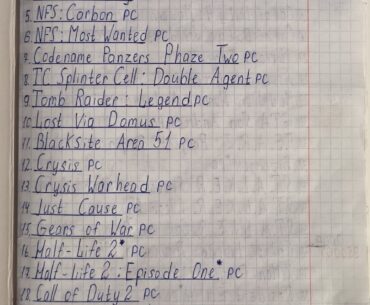 5. NFS: Carbon PC
6. NFS: Most Wanted PC
7. Codename Panzers Phaze Two PC
8. TC Splinter Cell: Double Agent PC
9. Tomb Raider: Legend PC
10. Lost Via Domus PC
11. Blacksite Area 51 PC
12. Crysis PC
13. Crysis Warhead PC
14. Just Cause PC
15. Gears of War PC
16. Half-Life 2* PC
17. Half-life 2: Episode One* PC
18. Call of Duty 2 PC